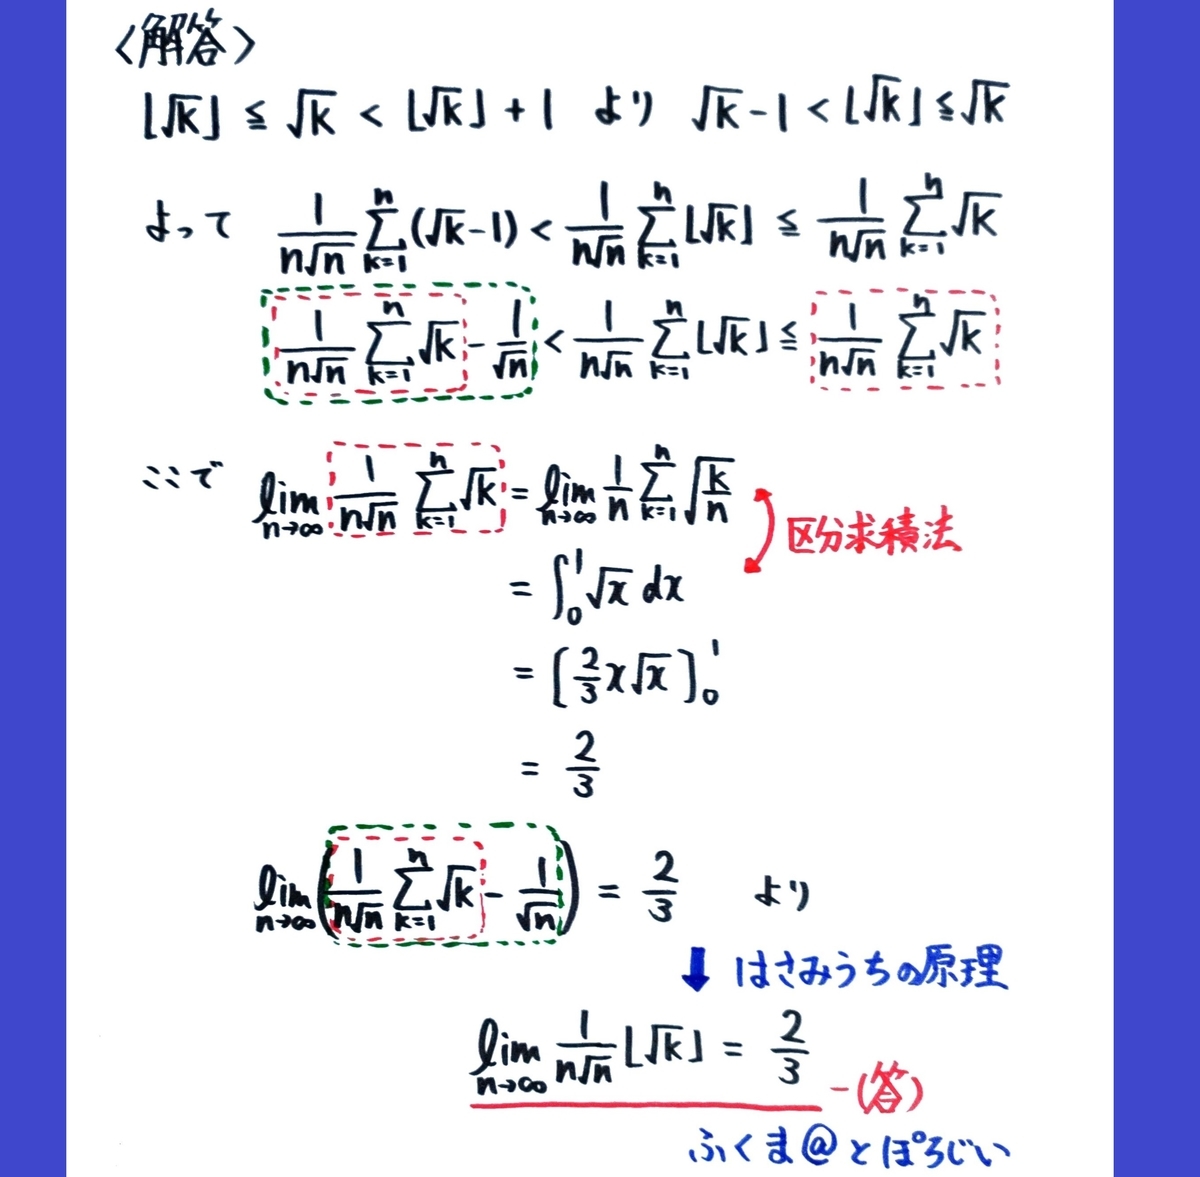 〈解答〉
⌊√k⌋ ≦ √k < ⌊√k⌋ + 1 より √k - 1 < ⌊√k⌋ ≦ √k
よって 1/(n√n) Σ_{k=1}^{n} (√k - 1) < 1/(n√n) Σ_{k=1}^{n} ⌊√k⌋ ≦ 1/(n√n) Σ_{k=1}^{n} √k
1/(n√n) Σ_{k=1}^{n} √k - 1/√n < 1/(n√n) Σ_{k=1}^{n} ⌊√k⌋ ≦ 1/(n√n) Σ_{k=1}^{n} √k
ここで lim_{n→∞} 1/(n√n) Σ_{k=1}^{n} √k = lim_{n→∞} 1/n Σ_{k=1}^{n} √(k/n)
区分求積法
= ∫_0^1 √x dx
= [2/3 x√x]_0^1
= 2/3
lim_{n→∞} (1/(n√n) Σ_{k=1}^{n} √k - 1/√n) = 2/3 より
↓ はさみうちの原理
lim_{n→∞} 1/(n√n) ⌊√k⌋ = 2/3 -(答)
ふくま@とぽろじい